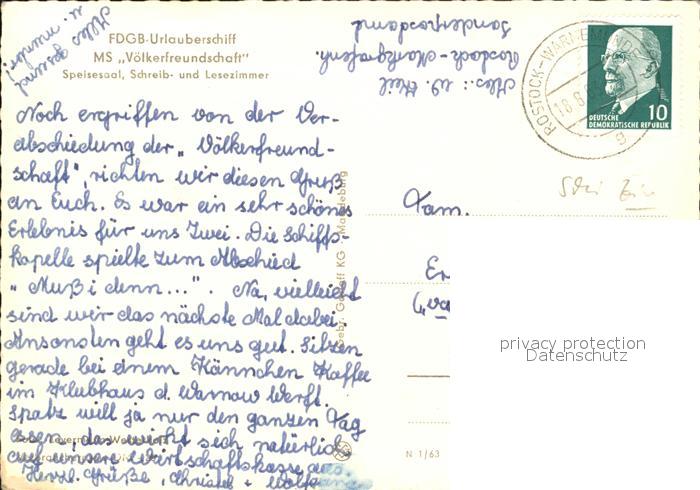 Alles gesund
u. munter!
FDGB-Urlauberschiff
MS „Völkerfreundschaft"
Speisesaal, Schreib- und Lesezimmer
Abs.: W. Heil
Rostock-Marktgrafenh.
Sonderpostamt
ROSTOCK-WARNEMÜNDE
DEUTSCHE
DEMOKRATISCHE REPUBLIK
10
Noch ergriffen von der Ver-
abschiedung der „Völkerfreund-
schaft", richten wir diesen Gruß
an Euch. Es war ein sehr schönes
Erlebnis für uns Zwei. Die Schiffs-
kapelle spielte zum Abschied
„Muß i denn...". Na, vielleicht
sind wir das nächste Mal dabei.
Ansonsten geht es uns gut. Sitzen
gerade bei einem Kännchen Kaffee
im Klubhaus d. Warnow Werft.
Spatz will ja nur den ganzen Tag
essen, das wirkt sich natürlich
auf unsere Wirtschaftskasse aus.
Herzl. Grüße, Christel + Wolfgang
Fam.
Er
privacy protection
Datenschutz
N 1/63